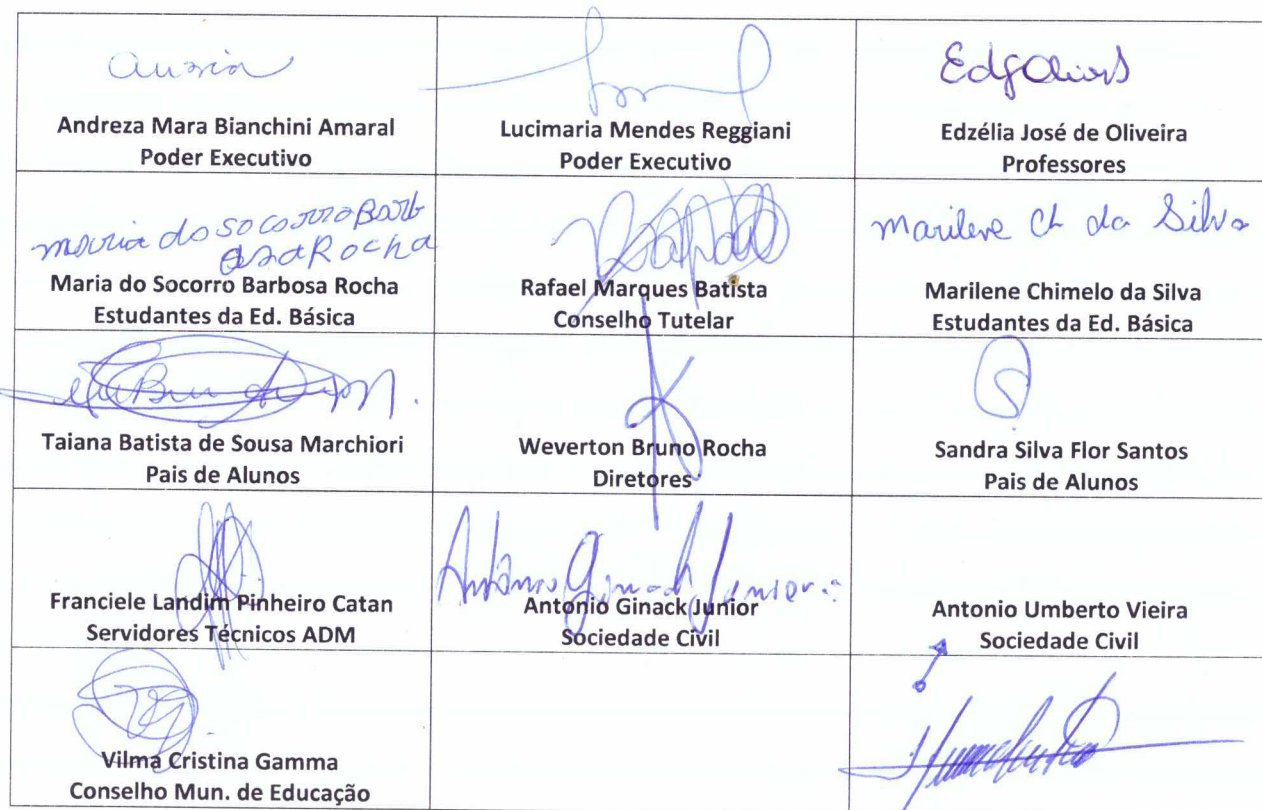 Andreza Mara Bianchini Amaral
Poder Executivo
Lucimaria Mendes Reggiani
Poder Executivo
Edzélia José de Oliveira
Professores
maria do socorro Barb
osa Rocha
Maria do Socorro Barbosa Rocha
Estudantes da Ed. Básica
Rafael Marques Batista
Conselho Tutelar
Marilene Ch da Silva
Marilene Chimelo da Silva
Estudantes da Ed. Básica
Taiana Batista de Sousa Marchiori
Pais de Alunos
Weverton Bruno Rocha
Diretores
Sandra Silva Flor Santos
Pais de Alunos
Franciele Landim Pinheiro Catan
Servidores Técnicos ADM
Antônio Ginack Junior
Antonio Ginack Junior
Sociedade Civil
Antonio Umberto Vieira
Sociedade Civil
Vilma Cristina Gamma
Conselho Mun. de Educação